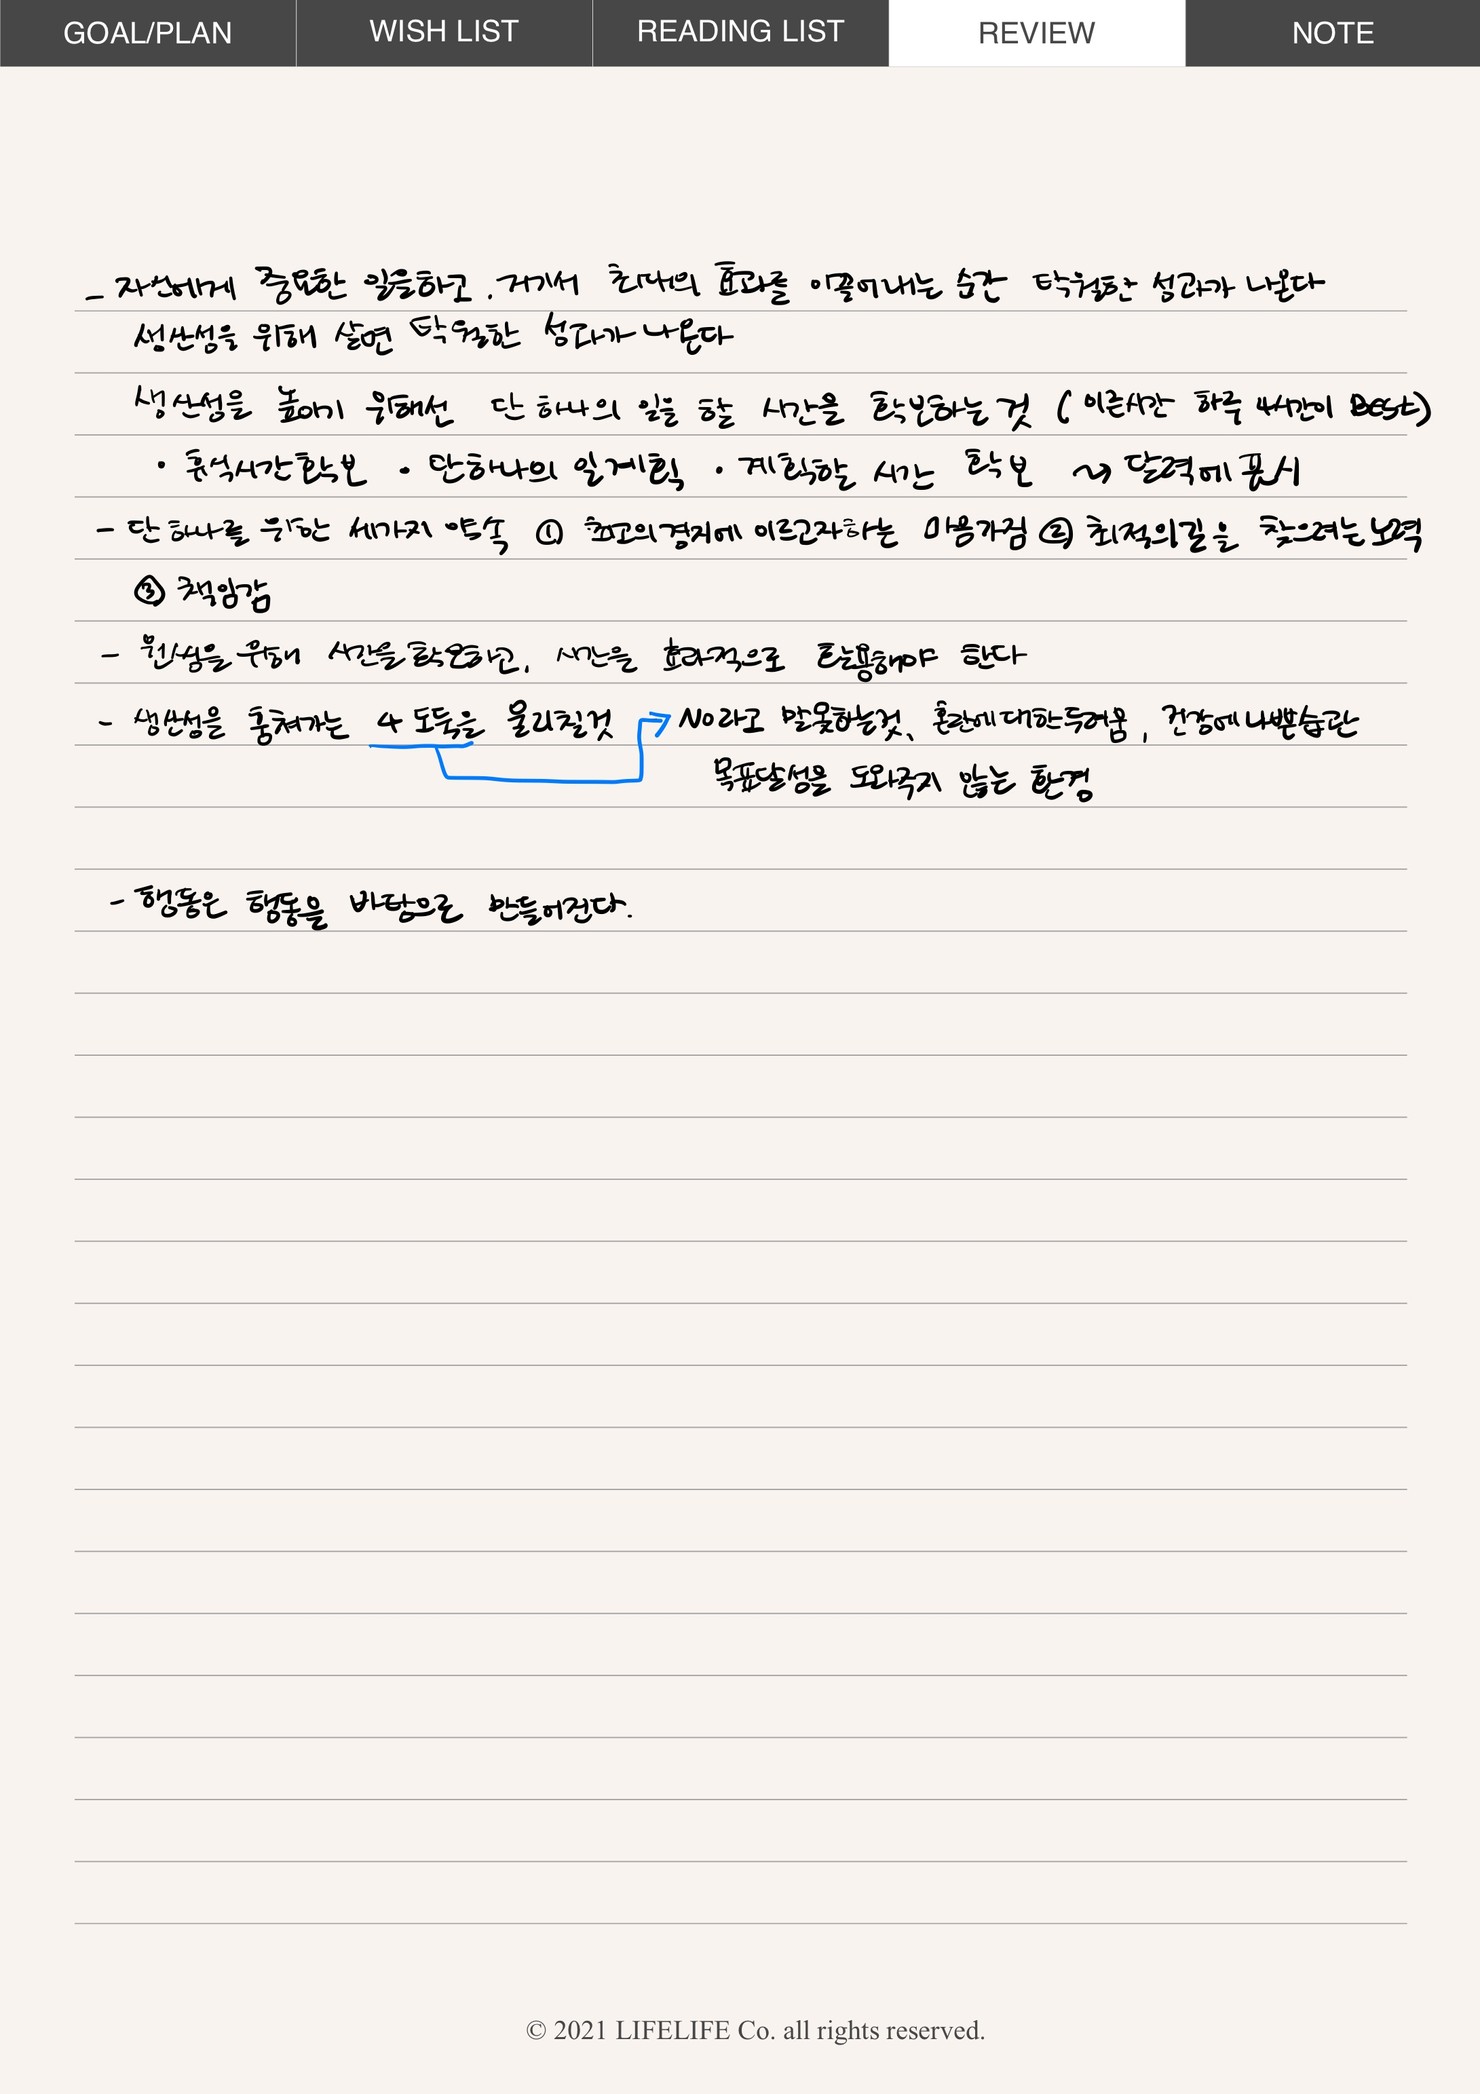 GOAL/PLAN WISH LIST READING LIST REVIEW NOTE
- 자신에게 중요한 일을하고, 거기서 최대의 효과를 이끌어내는 순간 탁월한 성과가 나온다
생산성을 위해 살면 탁월한 성과가 나온다
생산성을 높이기 위해선 단 하나의 일을 할 시간을 확보하는 것 (이른시간 하루 4시간이 BEST)
· 휴식시간확보 · 단하나의 일계획 · 계획할 시간 확보 ↝ 달력에 표시
- 단 하나를 위한 세가지 약속 ① 최고의경지에 이르고자하는 마음가짐 ② 최적의길을 찾으려는 노력
③ 책임감
- 위해 시간을 확보하고, 시간을 효과적으로 활용해야 한다
- 생산성을 훔쳐가는 4 도둑을 물리칠것 → NO라고 말못하는것, 혼란에대한두려움, 건강에나쁜습관
목표달성을 도와주지 않는 환경
- 행동은 행동을 바탕으로 만들어진다.
© 2021 LIFELIFE Co. all rights reserved.